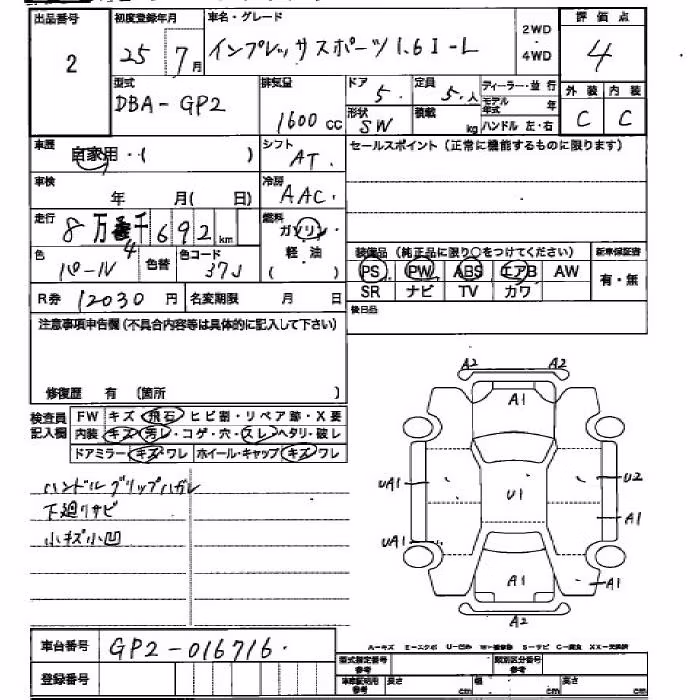 出品番号
2
初度登録年月
25 7月
車名・グレード
インプレッサスポーツ1.6I-L
2WD
・
4WD
評価点
4
型式
DBA-GP2
排気量
1600 CC
ドア
5.
定員
5.人
ディーラー・並行
モデル年式 年
ハンドル 左・右
形状
SW
積載
kg
外装 内装
C C
車歴
自家用・( )
シフト
AT.
セールスポイント(正常に機能するものに限ります)
車検
年 月( 日)
冷房
AAC.
走行
8万4千692km
燃料
ガソリン
軽・油
( )
色
パール
色替
色コード
37J
装備品(純正品に限り○をつけてください)
新車保証書
PS PW ABS エアB AW
SR ナビ TV カワ
有・無
R券 12030円
名変期限 月 日
後日品
注意事項申告欄(不具合内容等は具体的に記入して下さい)
修復歴 有 〔箇所 〕
検査員記入欄
FW キズ・飛石・ヒビ割・リペア跡・X要
内装 キズ・汚レ・コゲ・穴・スレ・ヘタリ・破レ
ドアミラー キズ・ワレ ホイール・キャップ キズ・ワレ
ハンドルグリップハガレ
下廻リサビ
小キズ小凹
A2 A2
A1
UA1
U1
U2
A1
UA1
A1
A1
A2
車台番号
GP2-016716.
登録番号
A-キズ E-エクボ U-凹み W-補修跡 S-サビ C-腐食 XX-交換済
型式指定番号
参考
類別区分番号
参考
車庫証明用
参考
長さ cm
幅 cm
高さ cm